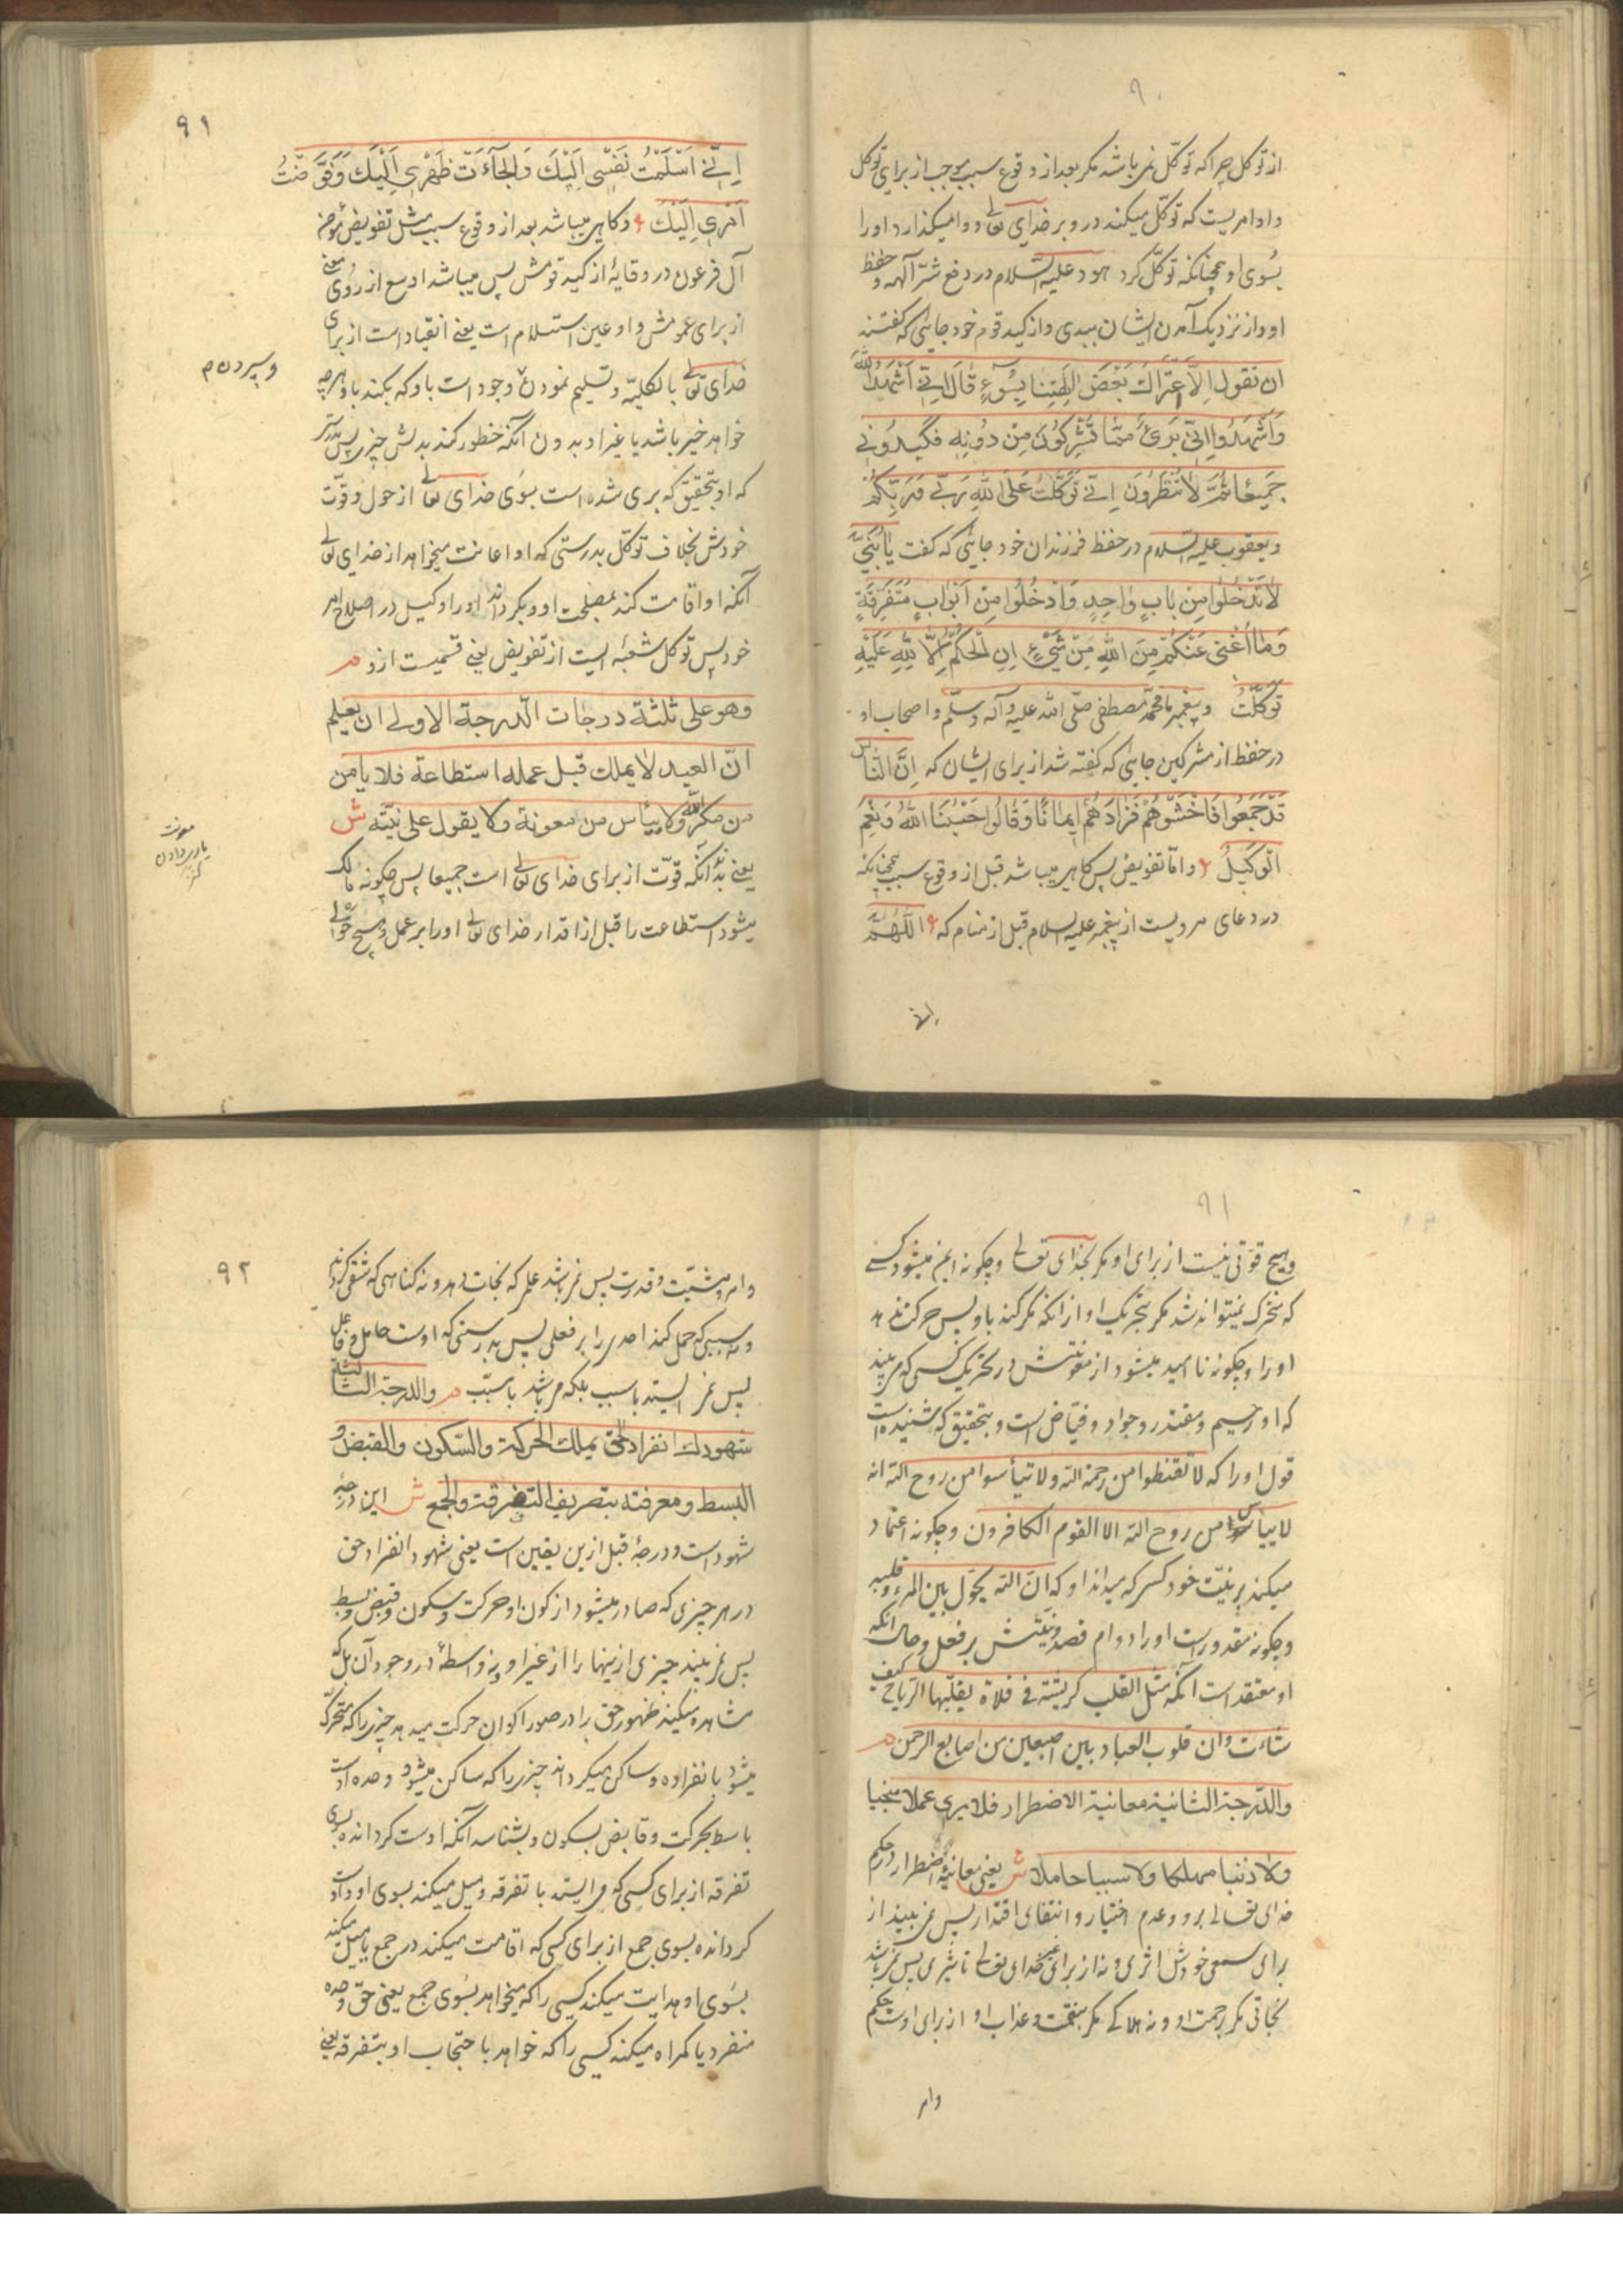 ٩٠
از توکل چرا که توکّل نمی باشد مکر بعد از وقوع سبب موجب از برای توکل
و او امریست که توکّل میکند در و بر خدای تعالی و وامیکذارد او را
بسُوی او همچنانکه توکّل کرد هود علیه السّلام در دفع شرّ آلهه و حفظ
او و از نزدیک آمدن ایشان ببدی و از کید قوم خود جائی که کفتند
ان نقول الّا اعتراک بَعْضُ الِهَتِنا بِسُوءٍ قالَ اِنّی اُشْهِدُ اللّٰه
وَاشْهَدُوا اَنّی بَریءٌ مِمّا تُشْرِکُونَ مِنْ دُونِهِ فَکیدُونی
جَمیعًا ثُمَّ لاتُنْظِرُونِ اِنّی تَوَکَّلْتُ عَلَی اللّٰهِ رَبّی وَرَبِّکُمْ
و یعقوب علیه السّلام در حفظ فرزندان خود جائی که کفت یا بَنِیَّ
لاتَدْخُلُوا مِنْ بابٍ واحِدٍ وَادْخُلُوا مِنْ اَبْوابٍ مُتَفَرِّقَةٍ
وَمٰا اُغْنی عَنْکُمْ مِنَ اللّٰهِ مِنْ شَیْءٍ اِنِ الْحُکْمُ اِلّا لِلّٰهِ عَلَیْهِ
تَوَکَّلْتُ و پیغمبر ما محمّد مصطفی صلّی اللّه علیه و آله و سلّم و اصحاب او
در حفظ از مشرکین جائی که کفته شد از برای ایشان که اِنَّ النّاسَ
قَدْ جَمَعُوا فَاخْشَوْهُمْ فَزادَهُمْ ایمانًا وَقالُوا حَسْبُنَا اللّٰهُ وَنِعْمَ
الْوَکیلُ و امّا تفویض پس کاهی میباشد قبل از وقوع سبب همچنانکه
در دعای مرویست از پیغمبر علیه السلام قبل از منام که اَللّٰهُمَّ
انی
٩١
اِنّی اَسْلَمْتُ نَفْسی اِلَیْکَ وَالْجَأْتُ ظَهْری اِلَیْکَ وَفَوَّضْتُ
اَمْری اِلَیْکَ و کاهی میباشد بعد از وقوع سبب مثل تفویض مؤمن
آل فرعون در وقایهٔ از کید قومش پس میباشد اوسع از رُوی معنی
از برای عمومش و او عین استسلام است یعنی انقیاد است از برای
خدای تعالی بالکلیّه و تسلیم نمودن وجود است باو که بکند باو هرچه
و سپردن م
خواهد خیر باشد یا غیر او بدون آنکه خطور کند بدلش چیزی پس بدرستی
که او بتحقیق که بری شده است بسُوی خدای تعالی از حول و قوّت
خودش بخلاف توکّل بدرستی که او اعانت میخواهد از خدای تعالی
آنکه او اقامت کند بمصلحت او و بکرداند او را وکیل در اصلاح امر
خود پس توکل شعبهٔ ایست از تفویض یعنی قسمیست از و م
وهو علی ثلثة درجات الدّرجة الاولی ان یعلم
انّ العبد لا یملک قبل عمله استطاعة فلا یأمن
من مکر اللّه ولا ییأس من معونة ولا یقول علی نیّته ش
معونت
یاری دادن
یعنی بداند آنکه قوّت از برای خدای تعالی است جمیعا پس چکونه مالک
میشود استطاعت را قبل از اقدار خدای تعالی او را بر عمل و هیچ حولی
٩١
و هیچ قوّتی نیست از برای او مکر بخدای تعالی و چکونه ایمن میشود کسی
که متحرک نمیتواند شد مکر بتحریک او از آنکه مکر کند باو پس حرکت ندهد
او را و چکونه نا امید میشود از معونتش در تحریک کسی که می بیند
که او رحیم و مقتدر و جواد و فیّاض است و بتحقیق که شنیده است
قول او را که لا تقنطوا من رحمة اللّه و لا تیأسوا من روح اللّه انه
لا ییأس من روح اللّه الا القوم الکافرون و چکونه اعتماد
میکند بر نیّت خود کسی که میداند او که انّ اللّه یحول بین المرء و قلبه
و چکونه مقدور است او را دوام قصد و نیّتش بر فعل و حال آنکه
او معتقد است آنکه مثل القلب کریشة فی فلاة یقلّبها الرّیاح کیف
شاءت و ان قلوب العباد بین اصبعین من اصابع الرّحمن م
والدّرجة الثانیة معاینة الاضطرار فلا یری عملا منجیا
ولا ذنبا مهلکا ولا سببا حاملا ش یعنی معاینهٔ اضطرار در حکم
خدای تعالی بر و و عدم اختیار و انتفای اقتدار پس نمی بیند از
برای سعی خودش اثری و نه از برای غیر خدای تعالی تأثیری پس نمی باشد
نجاتی مکر برحمت او و نه هلاکی مکر بنقمت و عذاب او از برای اوست حکم
وامر
٩٢
وامر و مشیّت و قدرت پس نمی باشد عملی که نجات دهد و نه کناهی که شقی کرداند
و نه سببی که حمل کند احدی را بر فعلی پس بدرستی که اوست حامل و فاعل
پس نمی ایستد با سبب بلکه می باشد با مسبّب م والدرجة الثالثة
شهودک انفراد الحق بملک الحرکة والسّکون والقبض و
البسط و معرفته بتصریف التفرقة والجمع ش این درجهٔ
شهود است و درجهٔ قبل ازین یقین است یعنی شهود انفراد حق
در هر چیزی که صادر میشود از کون او حرکت و سکون و قبض و بسط
پس نمی بیند چیزی ازینها را از غیر او و نه واسطهٔ در وجود آن بلکه
مشاهده میکند ظهور حق را در صور اکوان حرکت میدهد چیزی را که متحرک
میشود بانفراده و ساکن میکرداند چیزی را که ساکن میشود وحده اوست
باسط بحرکت و قابض بسکون و بشناسد آنکه اوست کرداننده بسوی
تفرقه از برای کسی که می ایستد با تفرقه و میل میکند بسوی او و اوست
کرداننده بسوی جمع از برای کسی که اقامت میکند در جمع یا میل میکند
بسُوی او هدایت میکند کسی را که میخواهد بسُوی جمع یعنی حقّ وحده
منفرد یا کمراه میکند کسی را که خواهد باحتجاب او بتفرقه یعنی